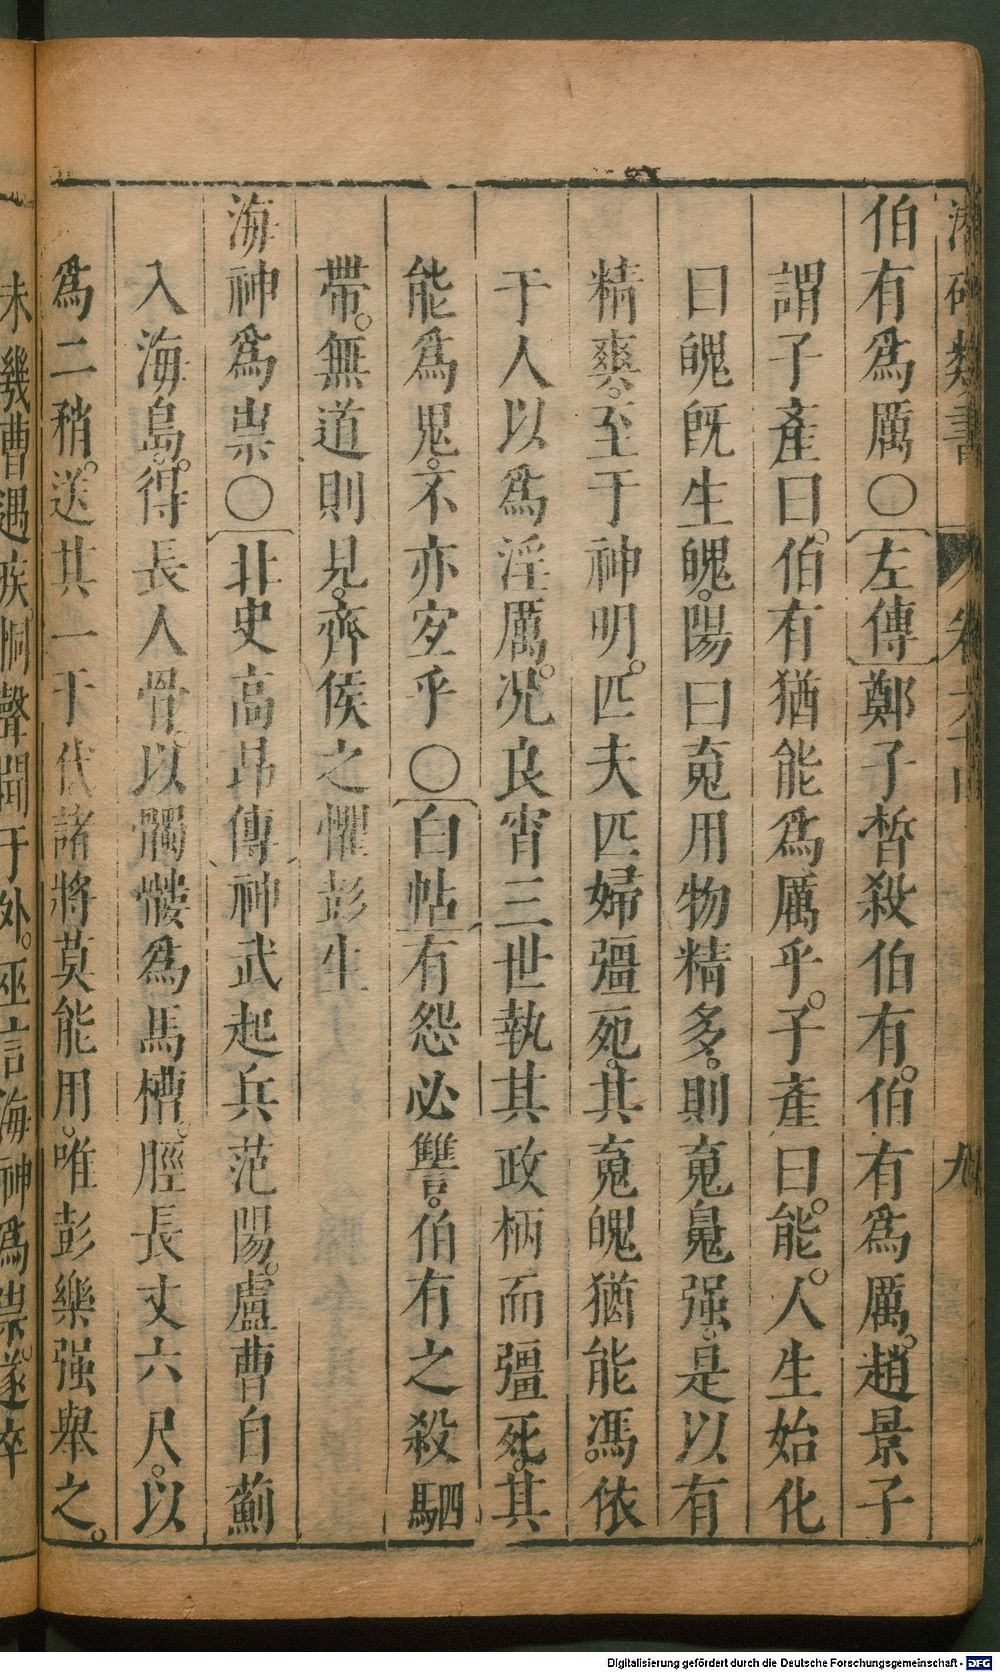 潛確類書 卷六十四 九
伯有爲厲○左傳鄭子皙殺伯有。伯有爲厲。趙景子
謂子產曰。伯有猶能爲厲乎。子產曰。能。人生始化
曰魄旣生魄。陽曰䰟用物精多。則䰟䰠强。是以有
精爽。至于神明。匹夫匹婦彊死。其䰟魄猶能馮。依
于人以爲淫厲。况良宵三世執其政柄而彊死。其
能爲鬼。不亦宐乎○白帖有怨必讐。伯有之殺駟
帶。無道則見。齊侯之懼彭生
海神爲祟○北史高昂傳神武起兵范陽。盧曹自薊
入海島。得長人骨。以髑髏爲馬槽。脛長丈六尺。以
爲二矟。送其一于代諸將莫能用。唯彭樂强舉之。
未幾曹遇疾。恫聲聞于外。巫言海神爲祟。遂卒
Digitalisierung gefördert durch die Deutsche Forschungsgemeinschaft - DFG